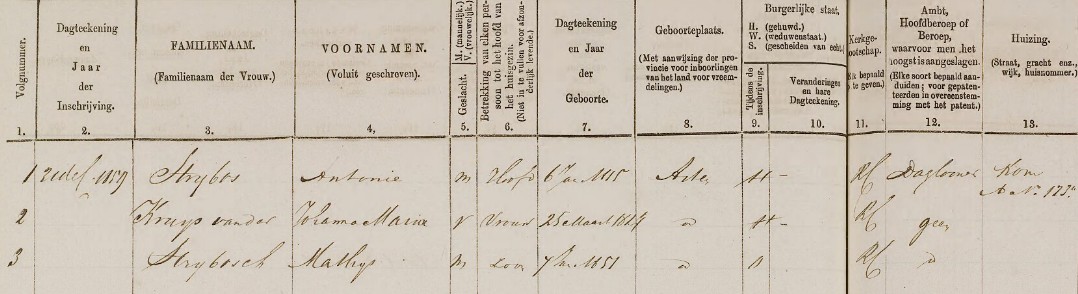 Volgnummer.
Dagteekening
en
Jaar
der
Inschrijving.
FAMILIENAAM.
(Familienaam der Vrouw.)
VOORNAMEN.
(Voluit geschreven).
M. (mannelijk.)
V. (vrouwelijk.)
Geslacht.
Betrekking van elken per-
soon tot het hoofd van
het huisgezin.
(Niet in te vullen voor afzon-
derlijk levende.)
Dagteekening
en Jaar
der
Geboorte.
Geboorteplaats.
(Met aanwijzing der pro-
vincie voor inboorlingen
van het land voor vreem-
delingen.)
Burgerlijke staat,
H. (gehuwd.)
W. (weduwenstaat.)
S. (gescheiden van echt.)
Tijdens de
inschrijving.
Veranderingen
en hare
Dagteekening.
Kerkge-
ootschap.
bepaald
te geven.)
Ambt,
Hoofdberoep of
Beroep,
waarvoor men het
hoogst is aangeslagen.
(Elke soort bepaald aan-
duiden; voor gepaten-
teerden in overeenstem-
ming met het patent.)
Huizing.
(Straat, gracht enz.,
wijk, huisnommer.)
1. 2. 3. 4. 5. 6. 7. 8. 9. 10. 11. 12. 13.
1 1859 Strybos Antonie m Hoofd 6 1815 Asten H - RC Daglooner Kom
A No.
2 Kruys van der Johanna Maria v Vrouw 25 Maart H - RC geen
3 Strybosch Mathys m Zoon 7 1851 RC